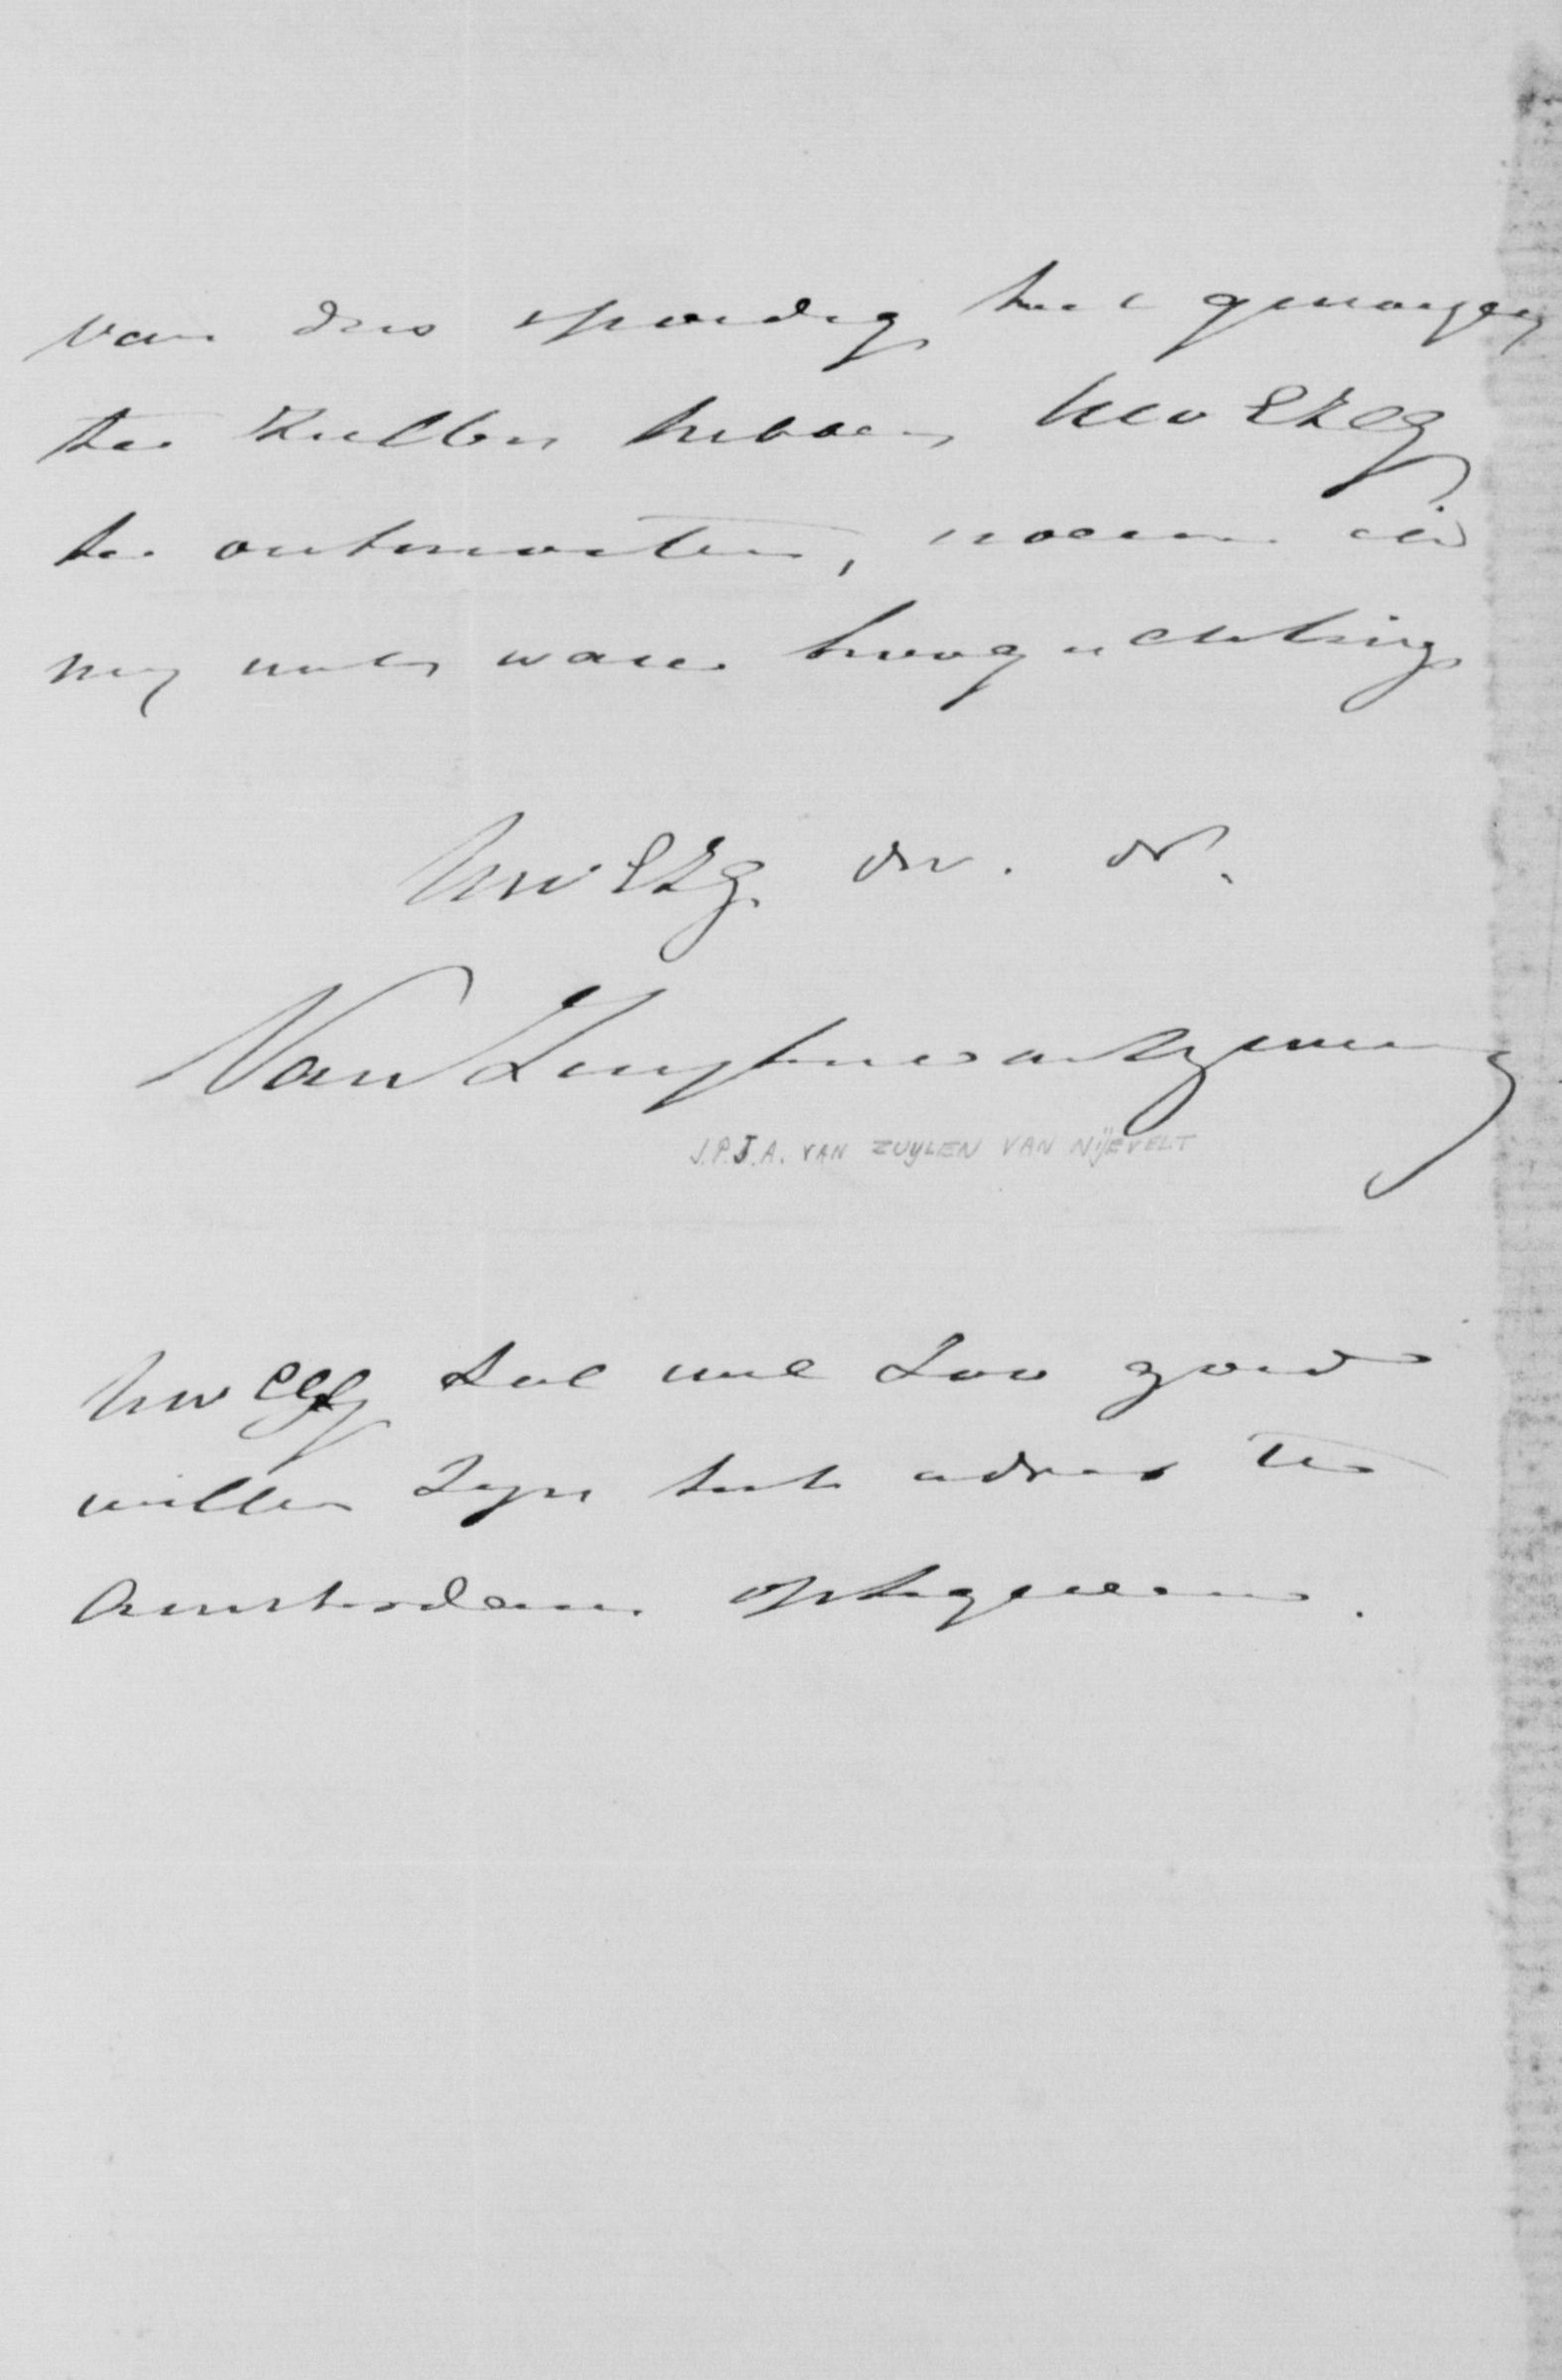 van dus spoedig het genoegen
te zullen hebben, Uw
te ontmoeten, noem ik
mij met ware hoogachting
Uw dw. dr.
Van Zuylen van Nyevelt
J.P.J.A. VAN ZUYLEN VAN NIJEVELT
Uw zal wel zoo goed
willen zyn het adres te
Amsterdam optegeven.